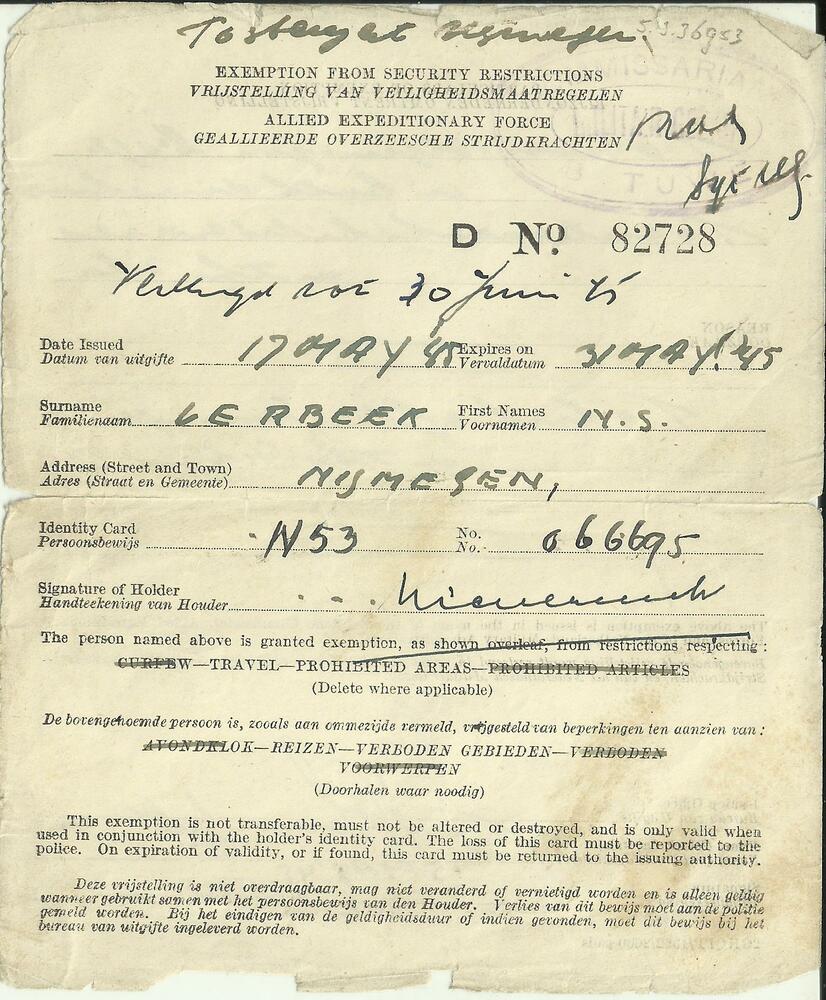 EXEMPTION FROM SECURITY RESTRICTIONS
VRIJSTELLING VAN VEILIGHEIDSMAATREGELEN
ALLIED EXPEDITIONARY FORCE
GEALLIEERDE OVERZEESCHE STRIJDKRACHTEN
D No 82728
Verlengd tot 30 Juni 45
Date Issued 17 MAY '45 Expires on 31 MAY. '45
Datum van uitgifte Vervaldatum
Surname First Names
Familienaam Voornamen
Address (Street and Town) NIJMEGEN,
Adres (Straat en Gemeente)
Identity Card N53 No. 066695
Persoonsbewijs No.
Signature of Holder
Handteekening van Houder
The person named above is granted exemption, as shown overleaf, from restrictions respecting:
CURFEW—TRAVEL—PROHIBITED AREAS—PROHIBITED ARTICLES
(Delete where applicable)
De bovengenoemde persoon is, zooals aan ommezijde vermeld, vrijgesteld van beperkingen ten aanzien van:
AVONDKLOK—REIZEN—VERBODEN GEBIEDEN—VERBODEN
VOORWERPEN
(Doorhalen waar noodig)
This exemption is not transferable, must not be altered or destroyed, and is only valid when
used in conjunction with the holder's identity card. The loss of this card must be reported to the
police. On expiration of validity, or if found, this card must be returned to the issuing authority.
Deze vrijstelling is niet overdraagbaar, mag niet veranderd of vernietigd worden en is alleen geldig
wanneer gebruikt samen met het persoonsbewijs van den Houder. Verlies van dit bewijs moet aan de politie
gemeld worden. Bij het eindigen van de geldigheidsduur of indien gevonden, moet dit bewijs bij het
bureau van uitgifte ingeleverd worden.